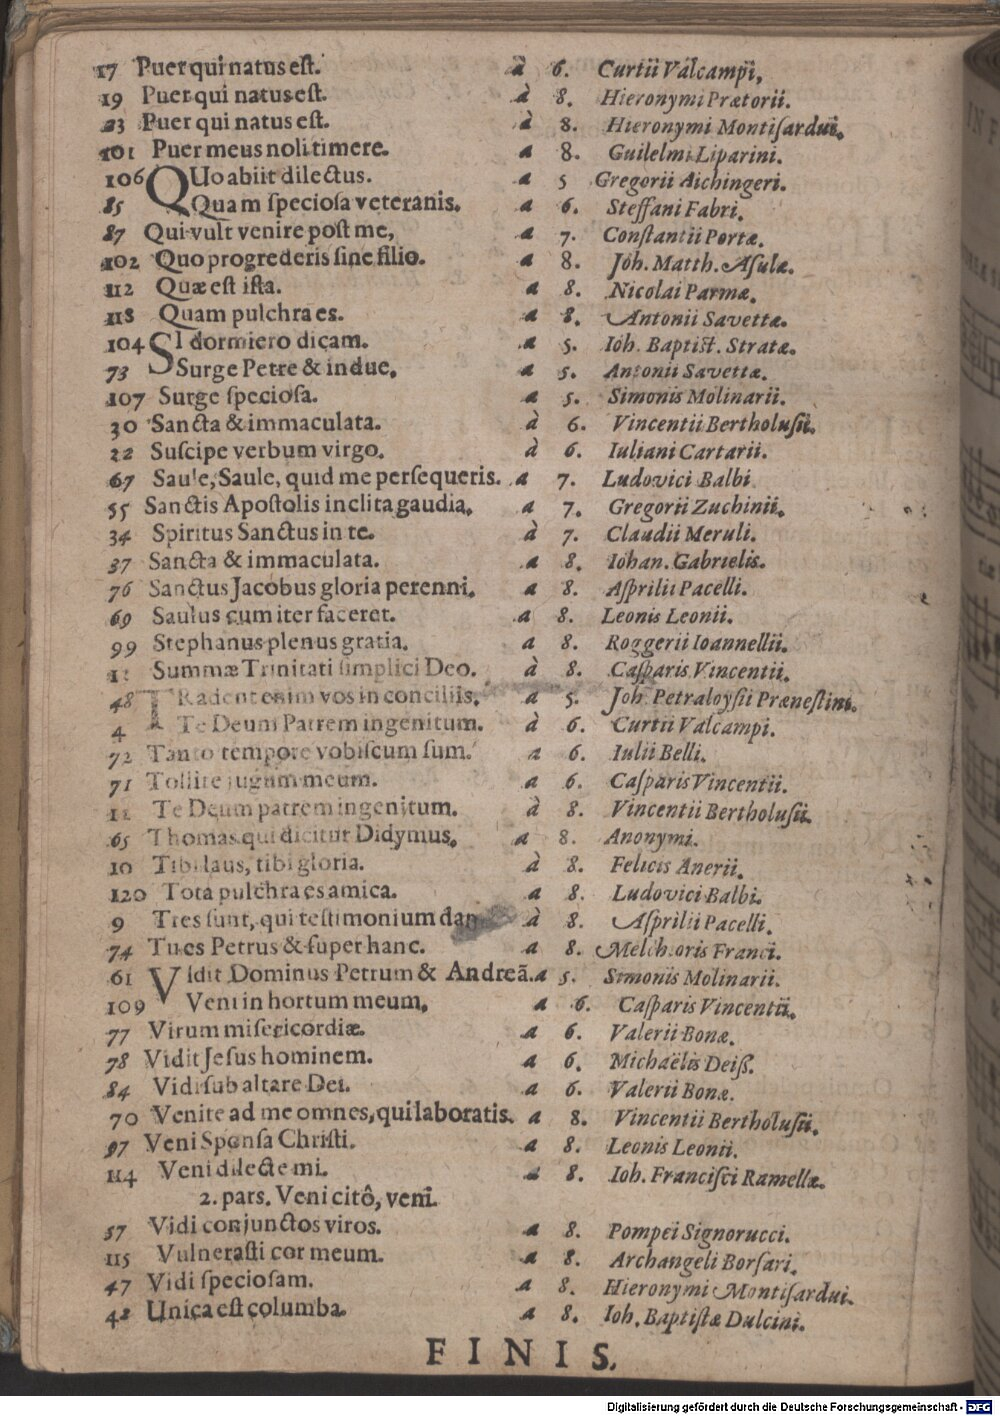 17 Puer qui natus est. à 6. Curtii Valcampi,
19 Puer qui natus est. à 8. Hieronymi Prætorii.
23 Puer qui natus est. à 8. Hieronymi Montisardui.
101 Puer meus noli timere. a 8. Guilelmi Liparini.
106 QUo abiit dilectus. a 5 Gregorii Aichingeri.
85 Quam speciosa veteranis. a 6. Steffani Fabri.
87 Qui vult venire post me, a 7. Constantii Portæ.
102 Quo progrederis sine filio. a 8. Joh. Matth. Asulæ.
112 Quæ est ista. a 8. Nicolai Parmæ.
118 Quam pulchra es. a 8. Antonii Savettæ.
104 SI dormiero dicam. a 5. Ioh. Baptist. Stratæ.
73 Surge Petre & indue. a 5. Antonii Savettæ.
107 Surge speciosa. a 5. Simonis Molinarii.
30 Sancta & immaculata. à 6. Vincentii Bertholusii.
22 Suscipe verbum virgo. à 6. Iuliani Cartarii.
67 Saule, Saule, quid me persequeris. a 7. Ludovici Balbi
55 Sanctis Apostolis inclita gaudia. a 7. Gregorii Zuchinii.
34 Spiritus Sanctus in te. à 7. Claudii Meruli.
37 Sancta & immaculata. a 8. Iohan. Gabrielis.
76 Sanctus Jacobus gloria perenni. a 8. Asprilii Pacelli.
69 Saulus cum iter faceret. a 8. Leonis Leonii.
99 Stephanus plenus gratia. a 8. Roggerii Ioannellii.
Summæ Trinitati simplici Deo. à 8. Casparis Vincentii.
48 TRadent enim vos in conciliis. a 5. Joh. Petraloysii Prænestini.
4 Te Deum Patrem ingenitum. à 6. Curtii Valcampi.
72 Tanto tempore vobiscum sum. a 6. Iulii Belli.
71 Tollite jugum meum. a 6. Casparis Vincentii.
Te Deum patrem ingenitum. à 8. Vincentii Bertholusii.
65 Thomas qui dicitur Didymus. a 8. Anonymi.
10 Tibi laus, tibi gloria. à 8. Felicis Anerii.
120 Tota pulchra es amica. a 8. Ludovici Balbi.
9 Tres sunt, qui testimonium dan à 8. Asprilii Pacelli.
74 Tu es Petrus & super hanc. a 8. Melchioris Franci.
61 VIdit Dominus Petrum & Andreã. a 5. Simonis Molinarii.
109 Veni in hortum meum. a 6. Casparis Vincentii.
77 Virum misericordiæ. a 6. Valerii Bonæ.
78 Vidit Jesus hominem. a 6. Michaëlis Deiß.
84 Vidi sub altare Dei. a 6. Valerii Bonæ.
70 Venite ad me omnes, qui laboratis. a 8. Vincentii Bertholusii.
97 Veni Sponsa Christi. a 8. Leonis Leonii.
114 Veni dilecte mi. a 8. Ioh. Francisci Ramellæ.
2. pars. Veni citô, veni.
57 Vidi conjunctos viros. a 8. Pompei Signorucci.
115 Vulnerasti cor meum. a 8. Archangeli Borsari.
47 Vidi speciosam. a 8. Hieronymi Montisardui.
42 Unica est columba. a 8. Ioh. Baptistæ Dulcini.
FINIS.
Digitalisierung gefördert durch die Deutsche Forschungsgemeinschaft - DFG